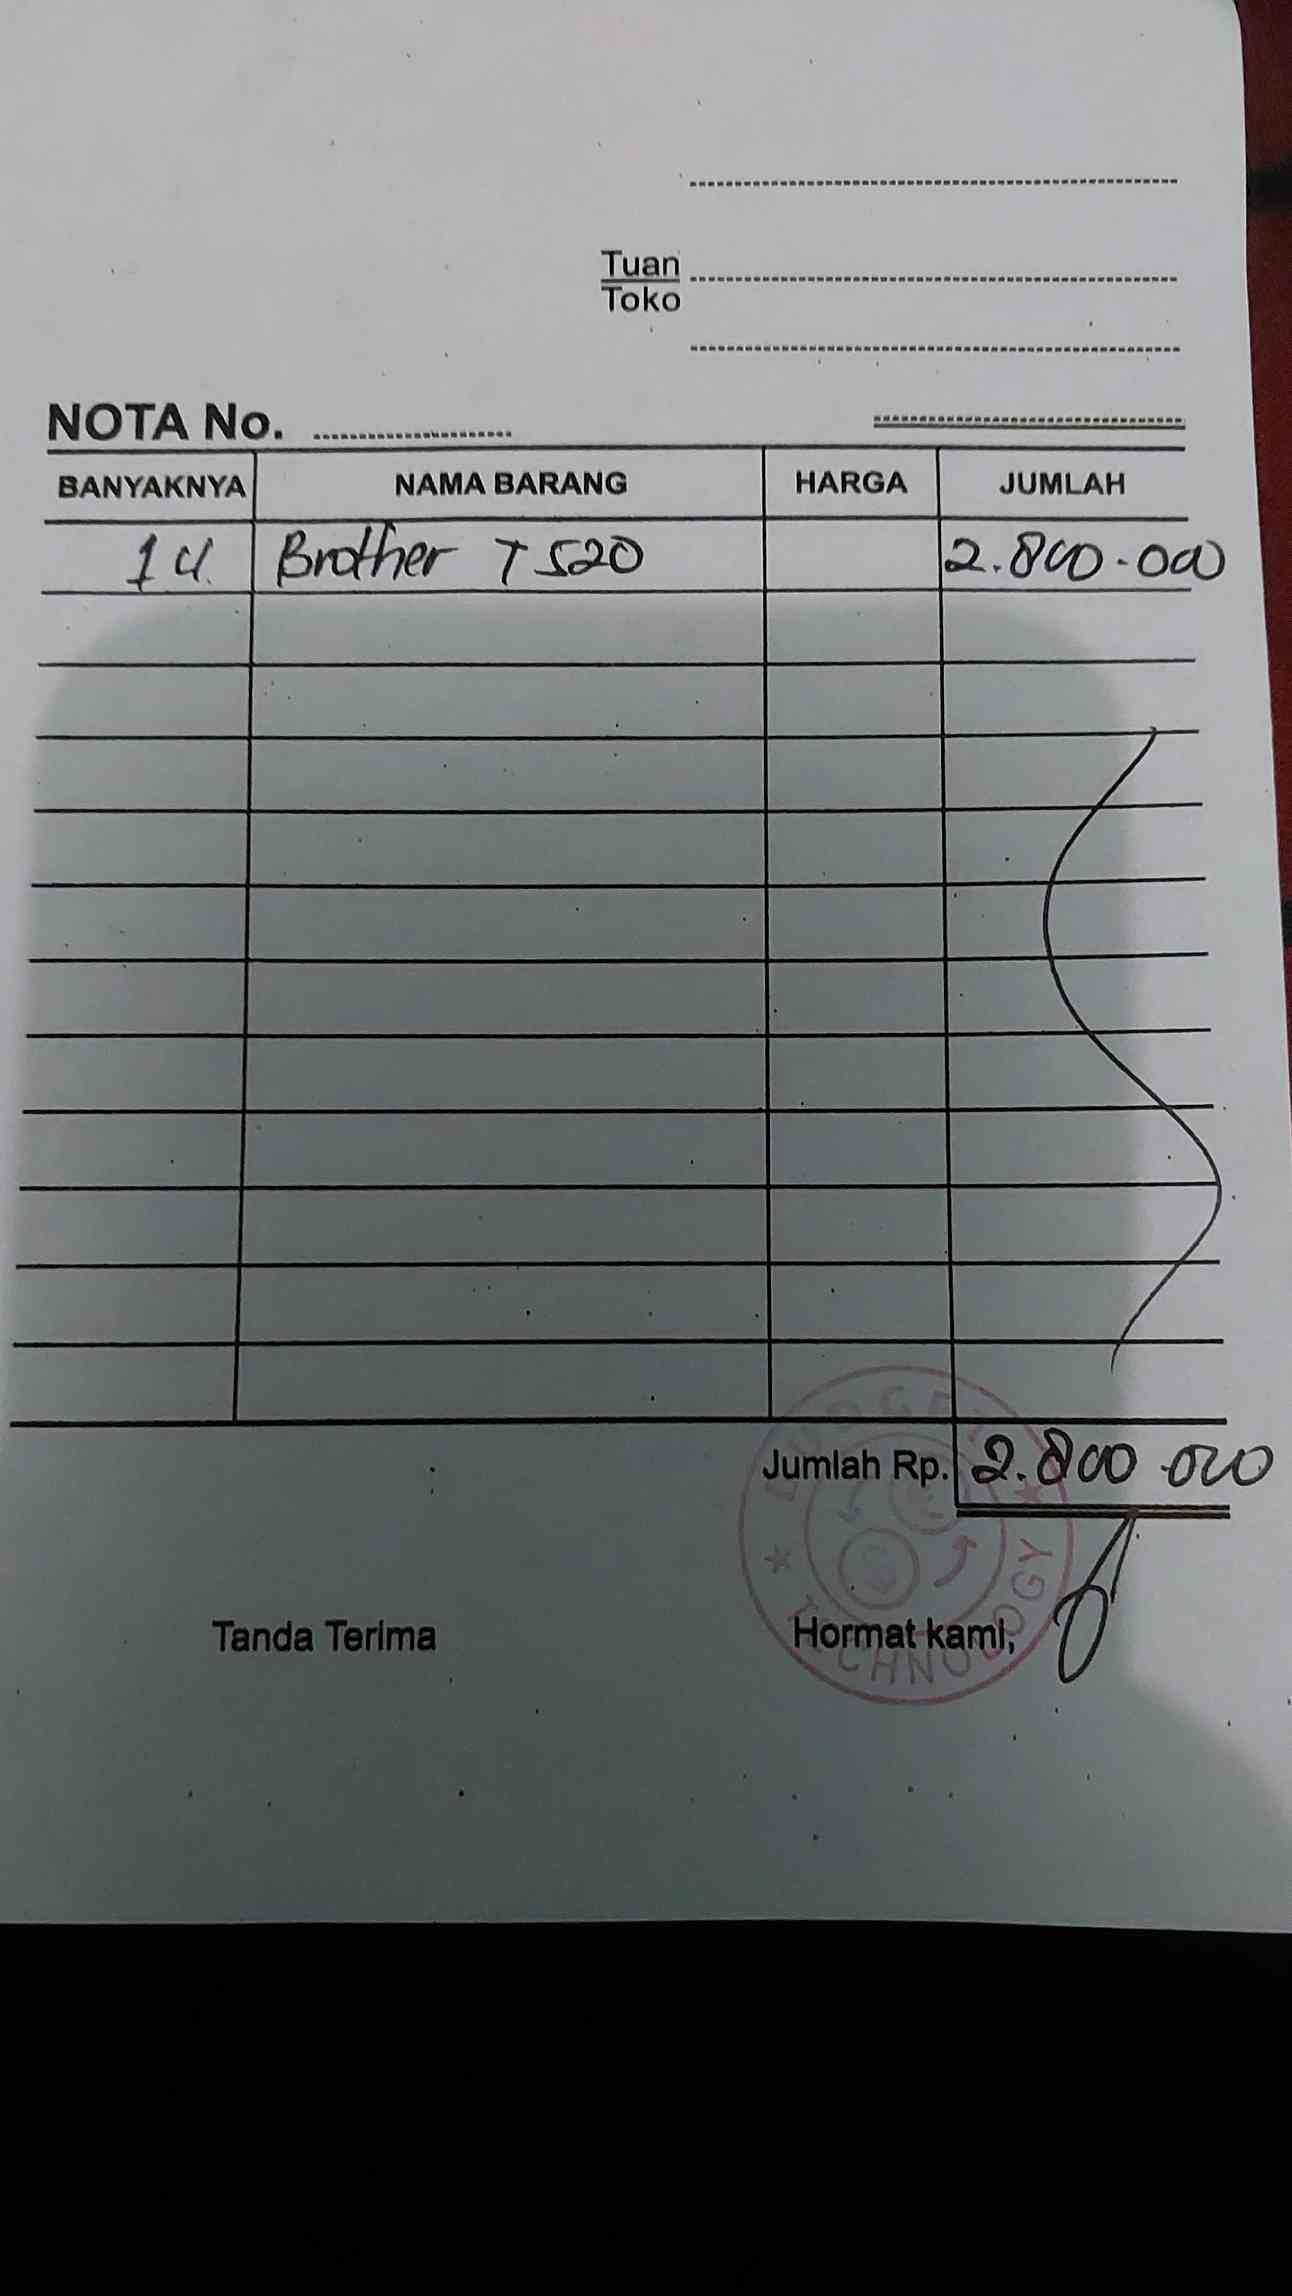 Tuan
Toko
NOTA No.
BANYAKNYA NAMA BARANG HARGA JUMLAH
1 U. Brother T 520 2.800.000
Jumlah Rp. 2.800.000
Tanda Terima Hormat kami,
TECHNOLOGY